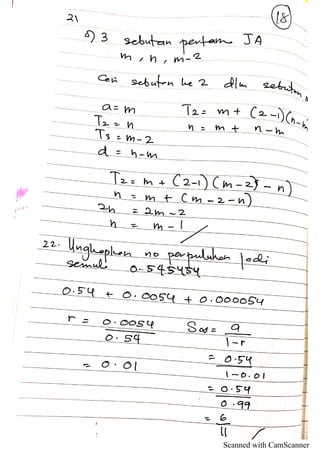 21
18
a) 3 sebutan pertama JA
m, n, m-2
Cari sebutan ke 2 dlm sebutan
a = m
T2 = m + (2-1)(n-m)
T2 = n
n = m + n-m
T3 = m-2
d = n-m
T2 = m + (2-1)(m-2) - n)
n = m + (m-2-n)
2n = 2m-2
n = m-1
22. Ungkapkan no perpuluhan jadi
semula 0.545454
0.54 + 0.0054 + 0.000054
r = 0.0054 / 0.54
S∞ = a / 1-r
= 0.01
= 0.54 / 1-0.01
= 0.54 / 0.99
= 6 / 11
Scanned with CamScanner